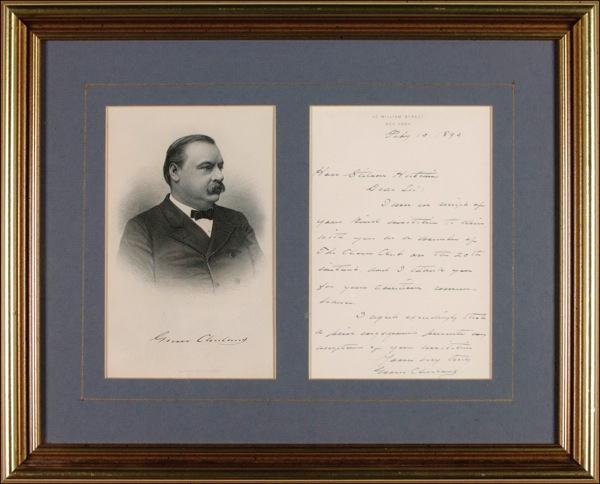 Grover Cleveland
45 WILLIAM STREET
NEW YORK
Feby 10, 1890
Hon Stilson Hutchins
Dear Sir:
I am in receipt of
your kind invitation to dine
with you as a member of
The Clover Club on the 20th
instant, and I thank you
for your courteous remem-
brance.
I regret exceedingly that
a prior engagement prevents my
acceptance of your invitation
Yours very truly
Grover Cleveland